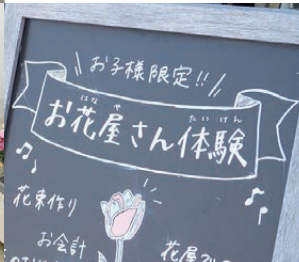 お子様限定!!
お花屋さん体験
花束作り
お会計
花屋